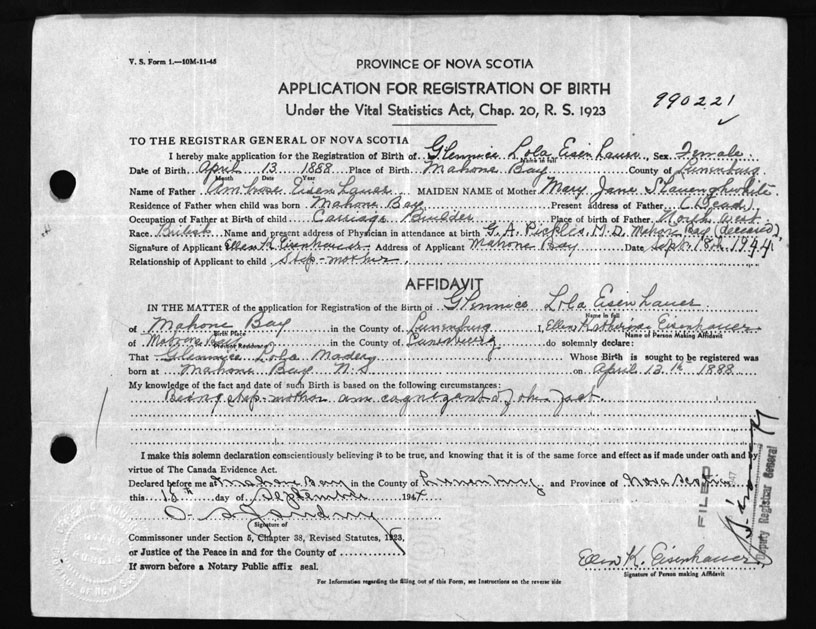 V. S. Form 1.—10M-11-45
PROVINCE OF NOVA SCOTIA
APPLICATION FOR REGISTRATION OF BIRTH
Under the Vital Statistics Act, Chap. 20, R. S. 1923
990221
TO THE REGISTRAR GENERAL OF NOVA SCOTIA
I hereby make application for the Registration of Birth of Glennice Lola Eisenhauer Sex Female
Name in full
Date of Birth April 13 1888 Place of Birth Mahone Bay County of Lunenburg
Month Date Year
Name of Father Ambrose Eisenhauer MAIDEN NAME of Mother Mary Jane
Residence of Father when child was born Mahone Bay Present address of Father (Dead)
Occupation of Father at Birth of child Carriage Builder Place of birth of Father North West
Race British Name and present address of Physician in attendance at birth G. A. Picklis, M.D. Mahone Bay (deceased)
Signature of Applicant Ellen K. Eisenhauer Address of Applicant Mahone Bay Date Sept. 18th, 1944
Relationship of Applicant to child Step-mother
AFFIDAVIT
IN THE MATTER of the application for Registration of the Birth of Glennice Lola Eisenhauer
Name in full
of Mahone Bay in the County of Lunenburg I, Ellen Katherine Eisenhauer
Birth Place Name of Person Making Affidavit
of Mahone Bay in the County of Lunenburg do solemnly declare:
Present Residence
That Glennice Lola Mader Whose Birth is sought to be registered was
born at Mahone Bay N.S on April 13th 1888.
My knowledge of the fact and date of such Birth is based on the following circumstances:
Being step-mother am cognizant of the fact.
I make this solemn declaration conscientiously believing it to be true, and knowing that it is of the same force and effect as if made under oath and by
virtue of The Canada Evidence Act.
Declared before me at Mahone Bay in the County of Lunenburg and Province of Nova Scotia
this 18th day of September 1944
Signature of
Commissioner under Section 5, Chapter 38, Revised Statutes, 1923,
or Justice of the Peace in and for the County of
If sworn before a Notary Public affix seal.
FILED
Deputy Registrar General
Ellen K. Eisenhauer
Signature of Person making Affidavit
For Information regarding the filling out of this Form, see Instructions on the reverse side